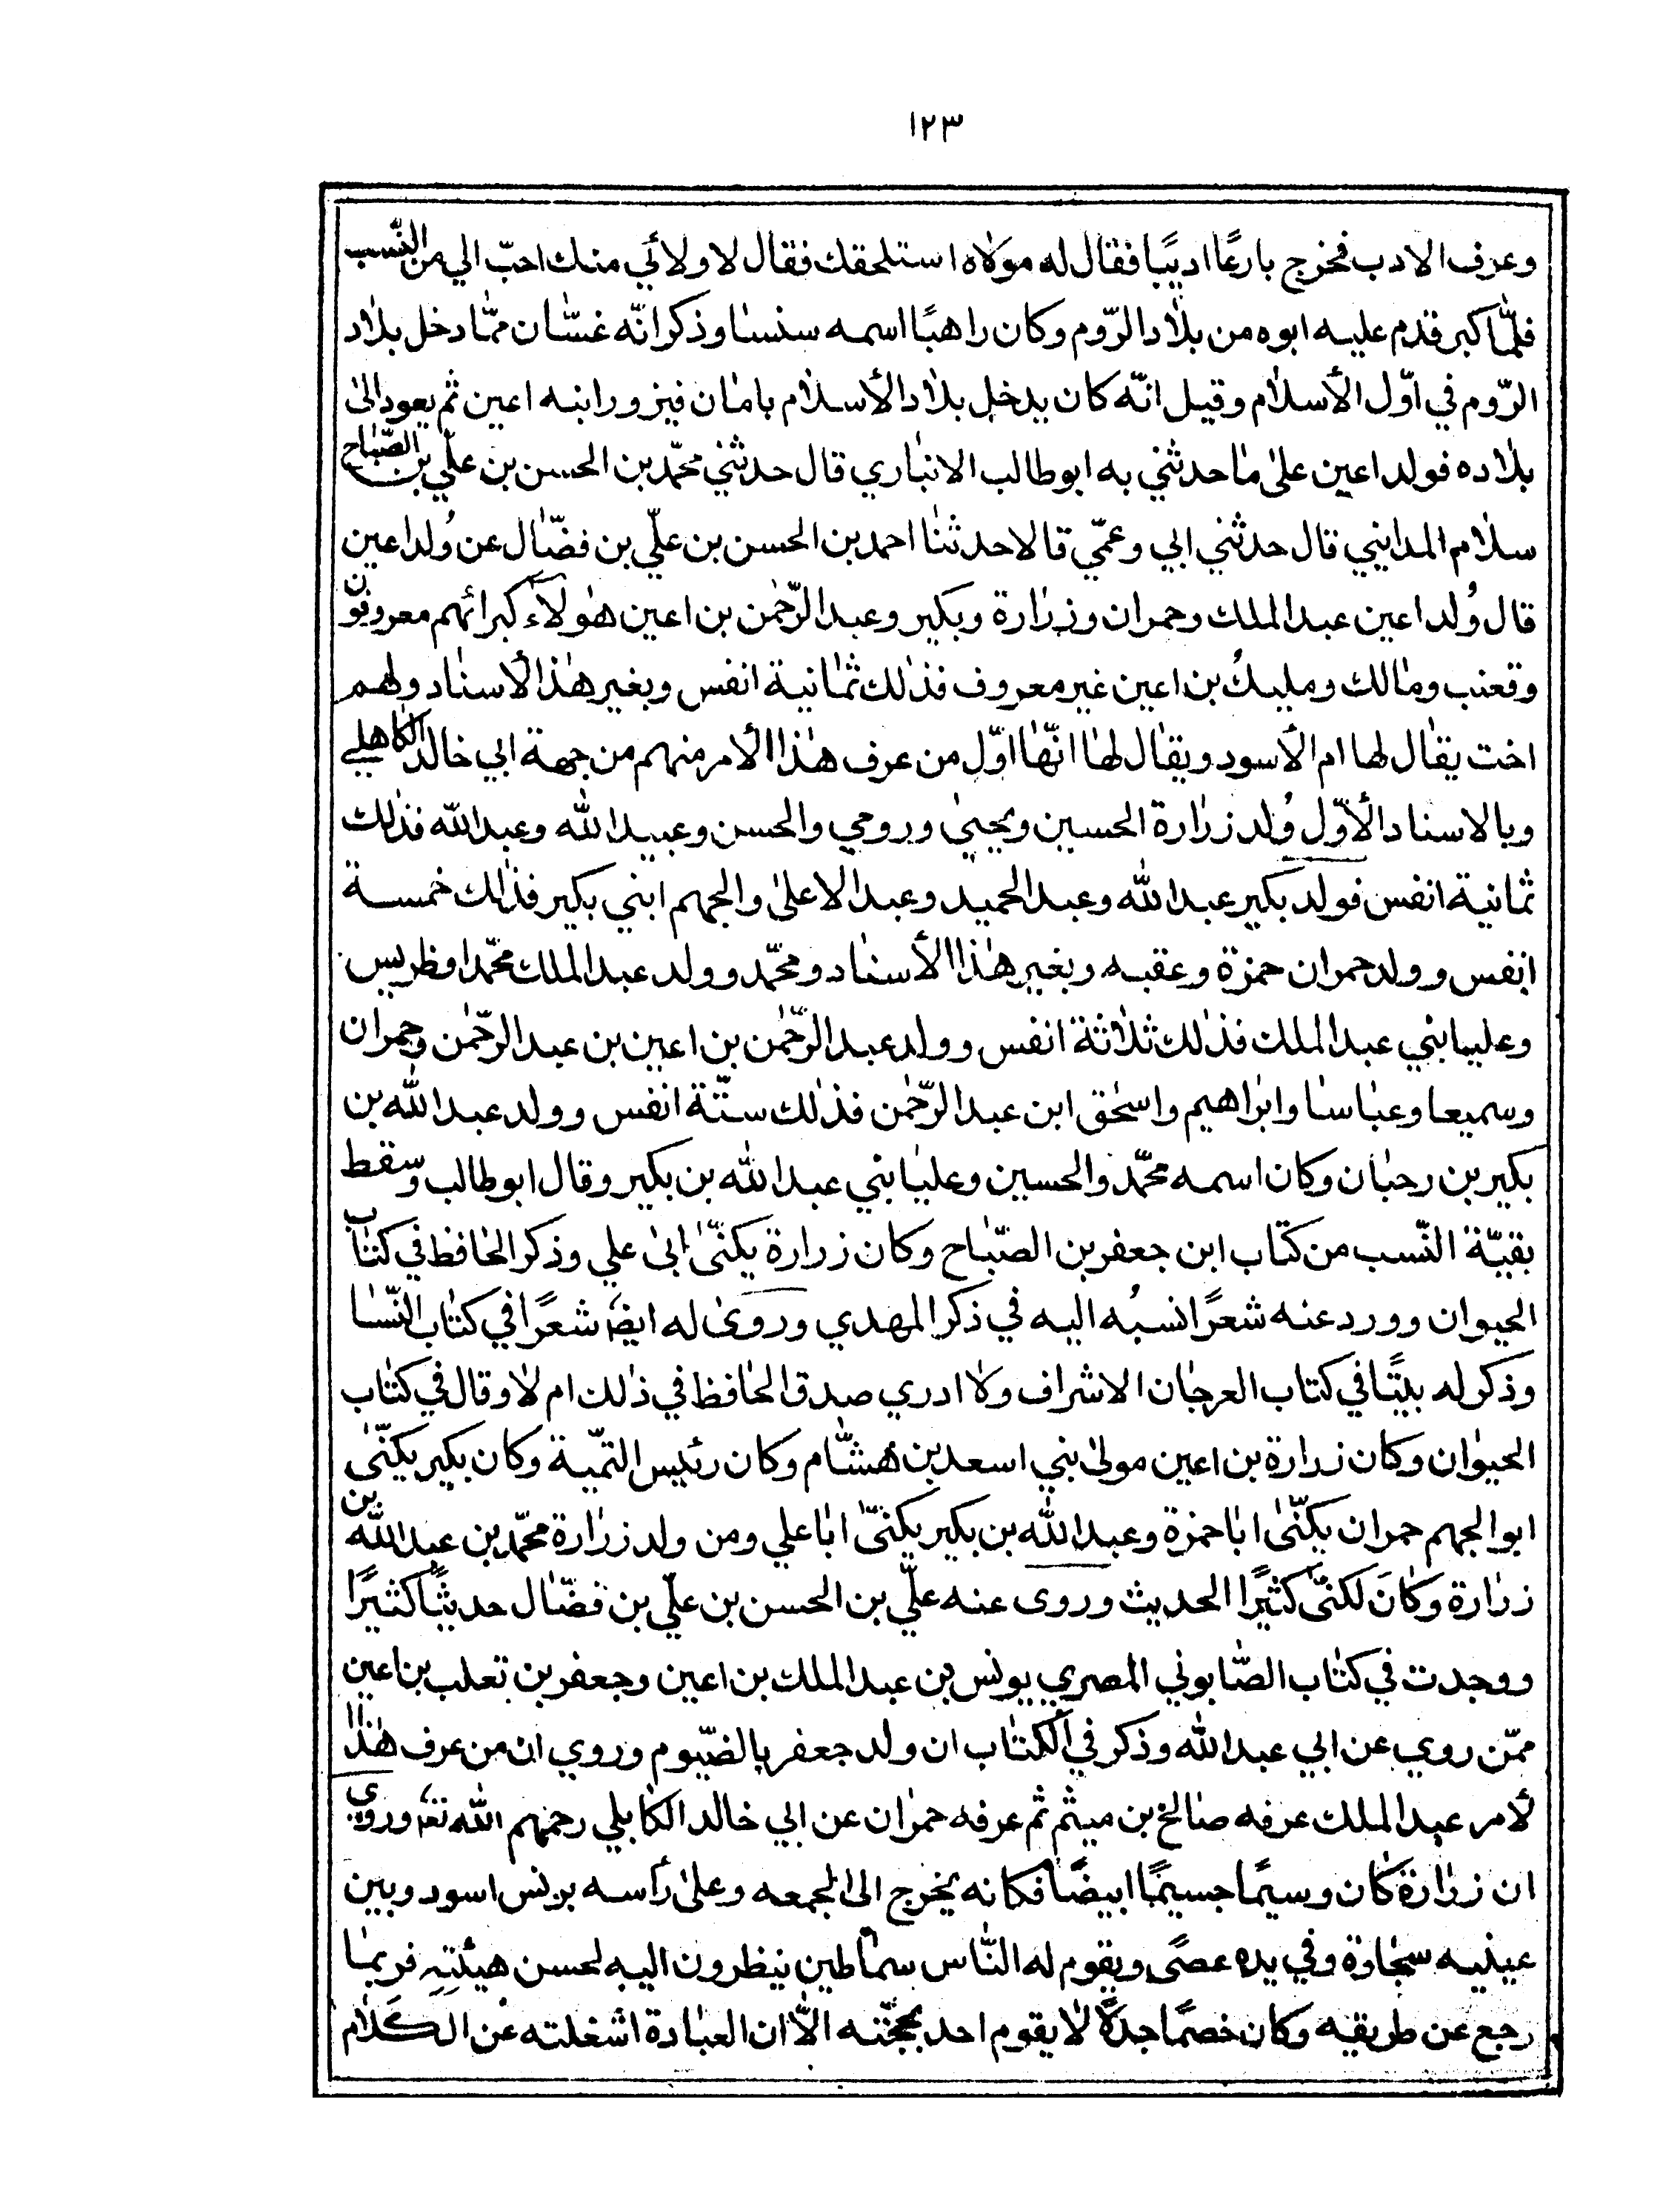 ١٢٣
وعرف الادب فخرج بارعًا اديبًا فقال له مولاه استلحقك فقال لا ولائي منك احبّ الي من النّسب
فلمّا كبر قدم عليه ابوه من بلاد الرّوم وكان راهبًا اسمه سنسنا وذكر انّه غسّان ممّا دخل بلاد
الرّوم في اوّل الأسلام وقيل انّه كان يدخل بلاد الأسلام بامان فيزور ابنه اعين ثم يعود الى
بلاده فولد اعين على ما حدثني به ابو طالب الانباري قال حدثني محمّد بن الحسن بن علّي بن الصّباح
سلام المدايني قال حدثني ابي وعمّي قالا حدثنا احمد بن الحسن بن علّي بن فضّال عن وُلد اعين
قال وُلد اعين عبد الملك وحمران وزرارة وبكير وعبد الرّحمن بن اعين هولاء كبرائهم معروفون
وقعنب ومالك ومليكُ بن اعين غير معروف فذلك ثمانية انفس وبغير هذا لأسناد ولهم
اخت يقال لها ام الأسود ويقال لها انّها اوّل من عرف هذا الأمر منهم من جهة ابي خالد الكاهلي
وبالاسناد الأوّل وُلد زرارة الحسين ويحيى ورومي والحسن وعبيد الله وعبد الله فذلك
ثمانية انفس فولد بكير عبد الله وعبد الحميد وعبد الاعلى والجهم ابني بكير فذلك خمسة
انفس وولد حمران حمزة وعقبه وبغير هذا الأسناد ومحمّد وولد عبد الملك محمّدا وظريس
وعليا بني عبد الملك فذلك ثلاثة انفس وولد عبد الرّحمن بن اعين بن عبد الرحّمن وحمران
وسميعا وعباسا وابراهيم واسحق ابن عبد الرّحمن فذلك ستّة انفس وولد عبد الله بن
بكير بن رحبان وكان اسمه محمّد والحسين وعليا بني عبد الله بن بكير وقال ابو طالب وسقط
بقيّة النّسب من كتاب ابن جعفر بن الصّباح وكان زرارة يكنّى ابى علي وذكر الحافظ في كتاب
الحيوان وورد عنه شعرًا نسبُه اليه في ذكر المهدي وروى له ايضا شعرًا في كتاب النّسا
وذكر له بيتًا في كتاب العرجان الاشراف ولا ادري صدق الحافظ في ذلك ام لا وقال في كتاب
الحيوان وكان زرارة بن اعين مولى بني اسعد بن هشّام وكان رئيس التميّة وكان بكير يكنّى
ابو الجهم حمران يكنّى ابا حمزة وعبد الله بن بكير يكنّى ابا علي ومن ولد زرارة محمّد بن عبد الله بن
زرارة وكانَ لكنّى كثيرًا الحديث وروى عنه علّي بن الحسن بن علّي بن فضّال حديثًا كثيرًا
ووجدت في كتاب الصّابوني المصري يونس بن عبد الملك بن اعين وجعفر بن تعلب بن اعين
ممّن روي عن ابي عبد الله وذكر في الكتاب ان ولد جعفر بالضيّوم وروي ان من عرف هذا
لأمر عبد الملك عرفه صالح بن ميثم ثم عرفه حمران عن ابي خالد الكابلي رحمهم الله تعه وروي
ان زرارة كان وسيمًا جسيمًا ابيضًا فكانه يخرج الى الجمعه وعلى رأسه برنس اسود وبين
عينيه سجادة وفي يده عصًى ويقوم له النّاس سماطين ينظرون اليه لحسن هيئتهِ فربما
رجع عن طريقه وكان خصمًا جدلًا لا يقوم احد بحجّته الاّ ان العبادة اشغلته عن الكلام